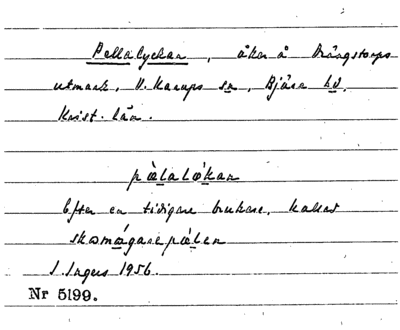 Pellalyckan, åker å Drängstorps
utmark, V. Karups sn, Bjäre hd.
Krist. län.
pàlalỳkan
Efter en tidigare brukare, kallad
skomágarepàlen
I. Ingers 1956.
Nr 5199.